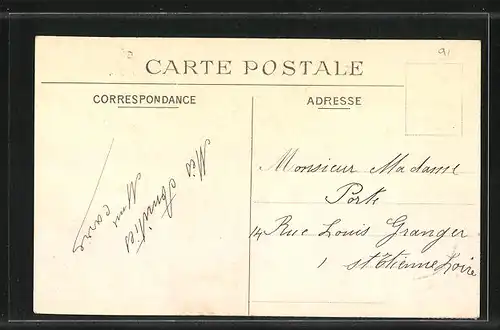 91
CARTE POSTALE
CORRESPONDANCE
ADRESSE
Mes
Amitiés
Monsieur Madame
Port
14 Rue Louis Granger
1 St Etienne Loire